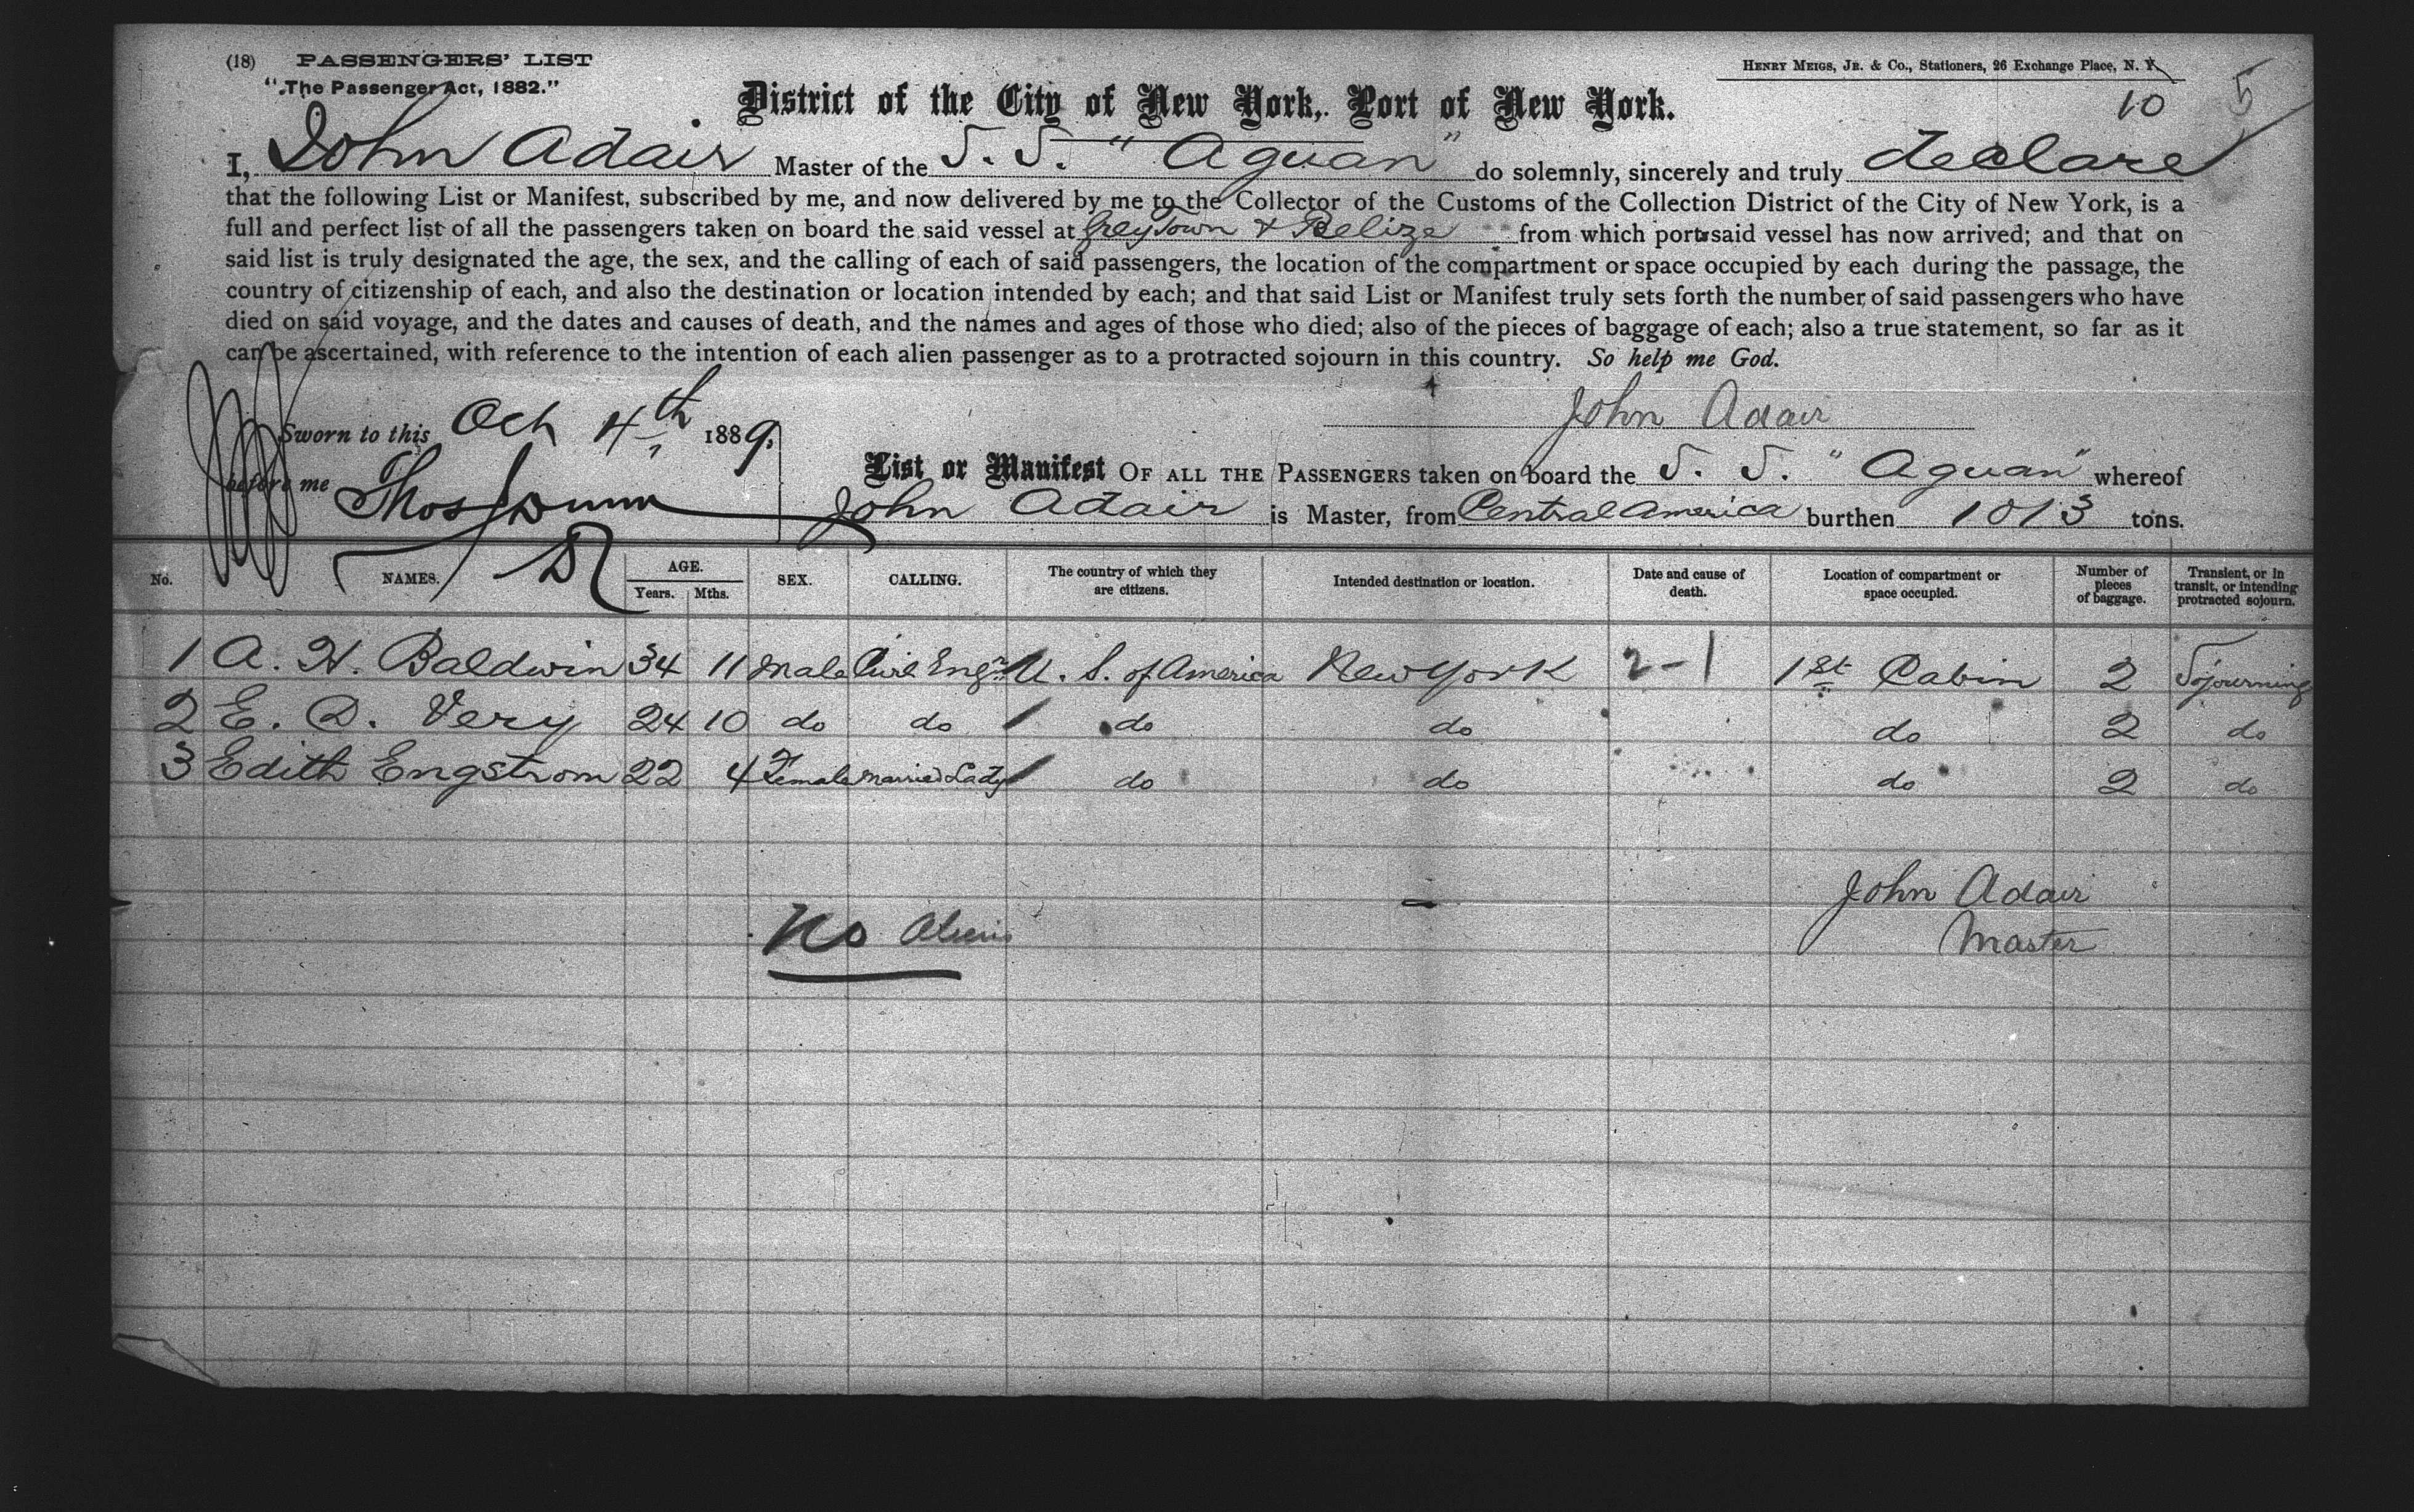 (18) PASSENGERS' LIST
"The Passenger Act, 1882."
HENRY MEIGS, JR. & Co., Stationers, 26 Exchange Place, N. Y.
10 5
District of the City of New York, Port of New York.
I, John Adair Master of the S. S. "Aguan" do solemnly, sincerely and truly declare
that the following List or Manifest, subscribed by me, and now delivered by me to the Collector of the Customs of the Collection District of the City of New York, is a
full and perfect list of all the passengers taken on board the said vessel at Greytown & Belize from which ports said vessel has now arrived; and that on
said list is truly designated the age, the sex, and the calling of each of said passengers, the location of the compartment or space occupied by each during the passage, the
country of citizenship of each, and also the destination or location intended by each; and that said List or Manifest truly sets forth the number of said passengers who have
died on said voyage, and the dates and causes of death, and the names and ages of those who died; also of the pieces of baggage of each; also a true statement, so far as it
can be ascertained, with reference to the intention of each alien passenger as to a protracted sojourn in this country. So help me God.
John Adair
Sworn to this Oct 4th 1889.
before me Thos Dunn
List or Manifest OF ALL THE PASSENGERS taken on board the S. S. "Aguan" whereof
John Adair is Master, from Central America burthen 1013 tons.
No. NAMES. AGE. Years. Mths. SEX. CALLING. The country of which they are citizens. Intended destination or location. Date and cause of death. Location of compartment or space occupied. Number of pieces of baggage. Transient, or in transit, or intending protracted sojourn.
1 A. H. Baldwin 34 11 Male Civil Engr U. S. of America New York 2-1 1st Cabin 2 Sojourning
2 E. D. Very 24 10 do do do do do 2 do
3 Edith Engstrom 22 4 Female Married Lady do do do 2 do
John Adair
No Aliens
Master